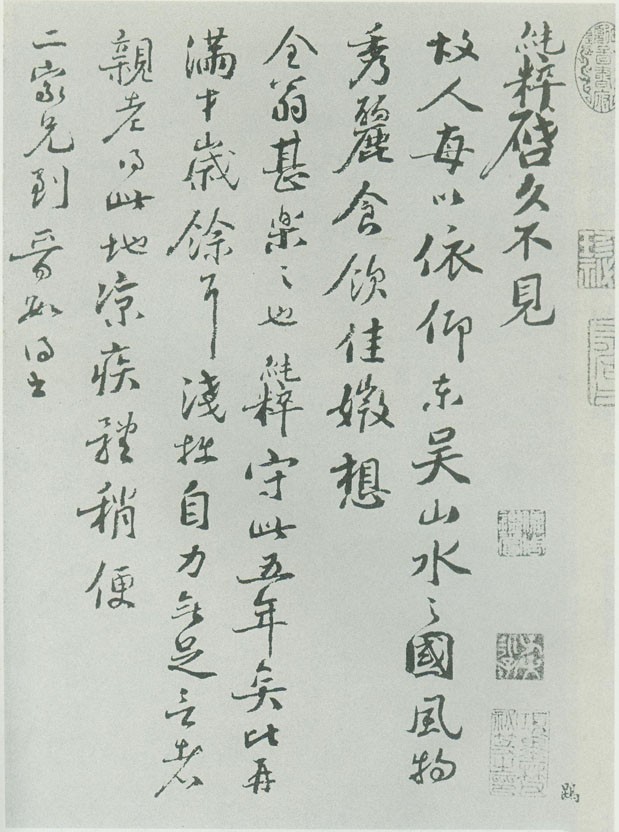 純粹啓久不見
故人每以依仰東吳山水之國風物
秀麗食飲佳媺想
全翁甚樂之也純粹守此五年矣比再
滿才歲餘耳淺拙自力無足言者
親老得此地涼疾稍便
二家兄到晉數得書